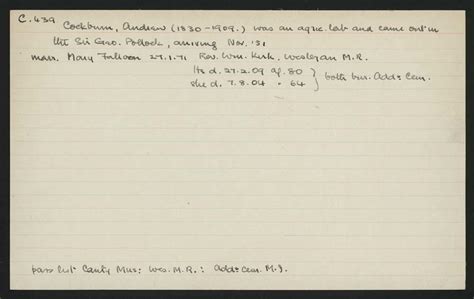 C.439 Cockburn, Andrew (1830-1909.) was an agric. lab and came out in
the Sir Geo. Pollock, arriving Nov. '51
marr. Mary Falloon 27.1.71 Rev. Wm. Kirk, Wesleyan M.R.
He d. 27.2.09 ag. 80 } both bur. Add: Cem.
she d. 7.8.04 " 64
pass list Canty Mus; Wes. M.R.: Add: Cem. M.I.